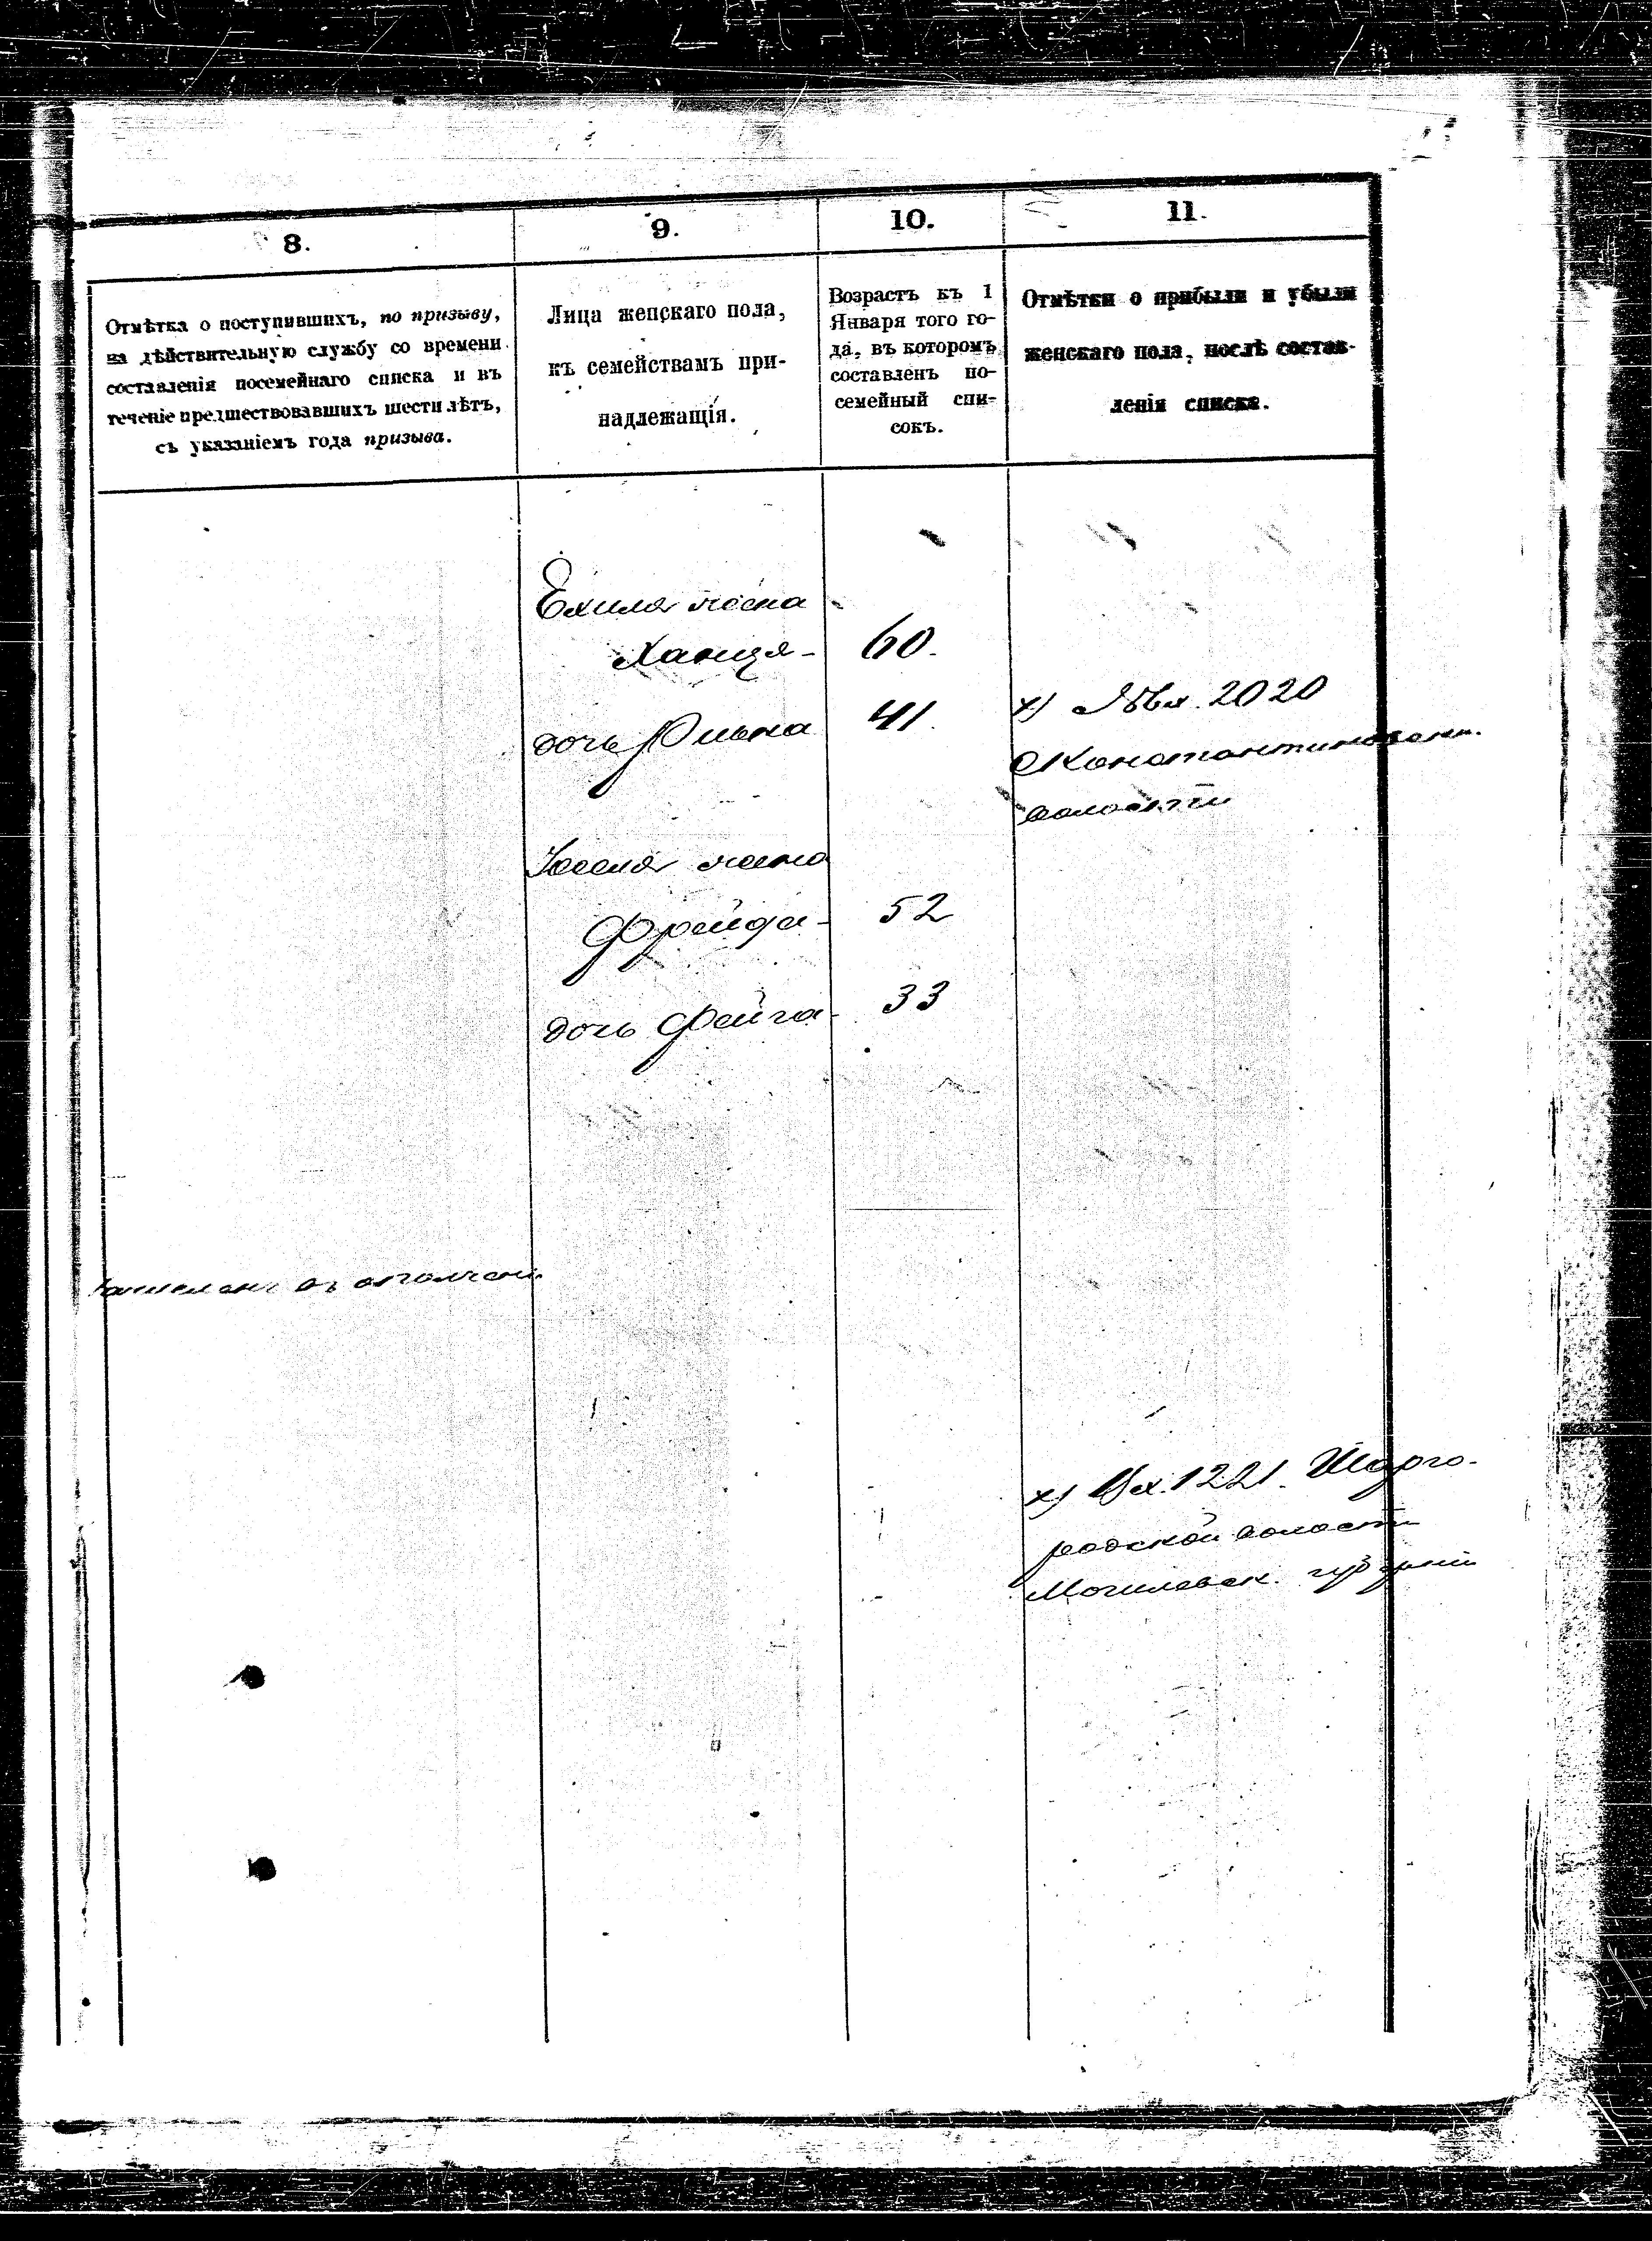 8.
9.
10.
11.
Отмѣтка о поступившихъ, по призыву,
на дѣйствительную службу со времени
составленія посемейнаго списка и въ
теченіе предшествовавшихъ шести лѣтъ,
съ указаніемъ года призыва.
Лица женскаго пола,
къ семействамъ при-
надлежащія.
Возрастъ къ 1
Января того го-
да, въ которомъ
составленъ по-
семейный спи-
сокъ.
Отмѣтки о прибыли и убыли
женскаго пола, послѣ состав-
ленія списка.
Ехиля жена
Ханця - 60.
дочь 41.
х) 2020
Константиновск.
волости
жена
Фрейда - 52
дочь Фейга - 33
въ ополчен.
х) Вх. 1221. Шарго-
родской волости
Могилевск. губерніи